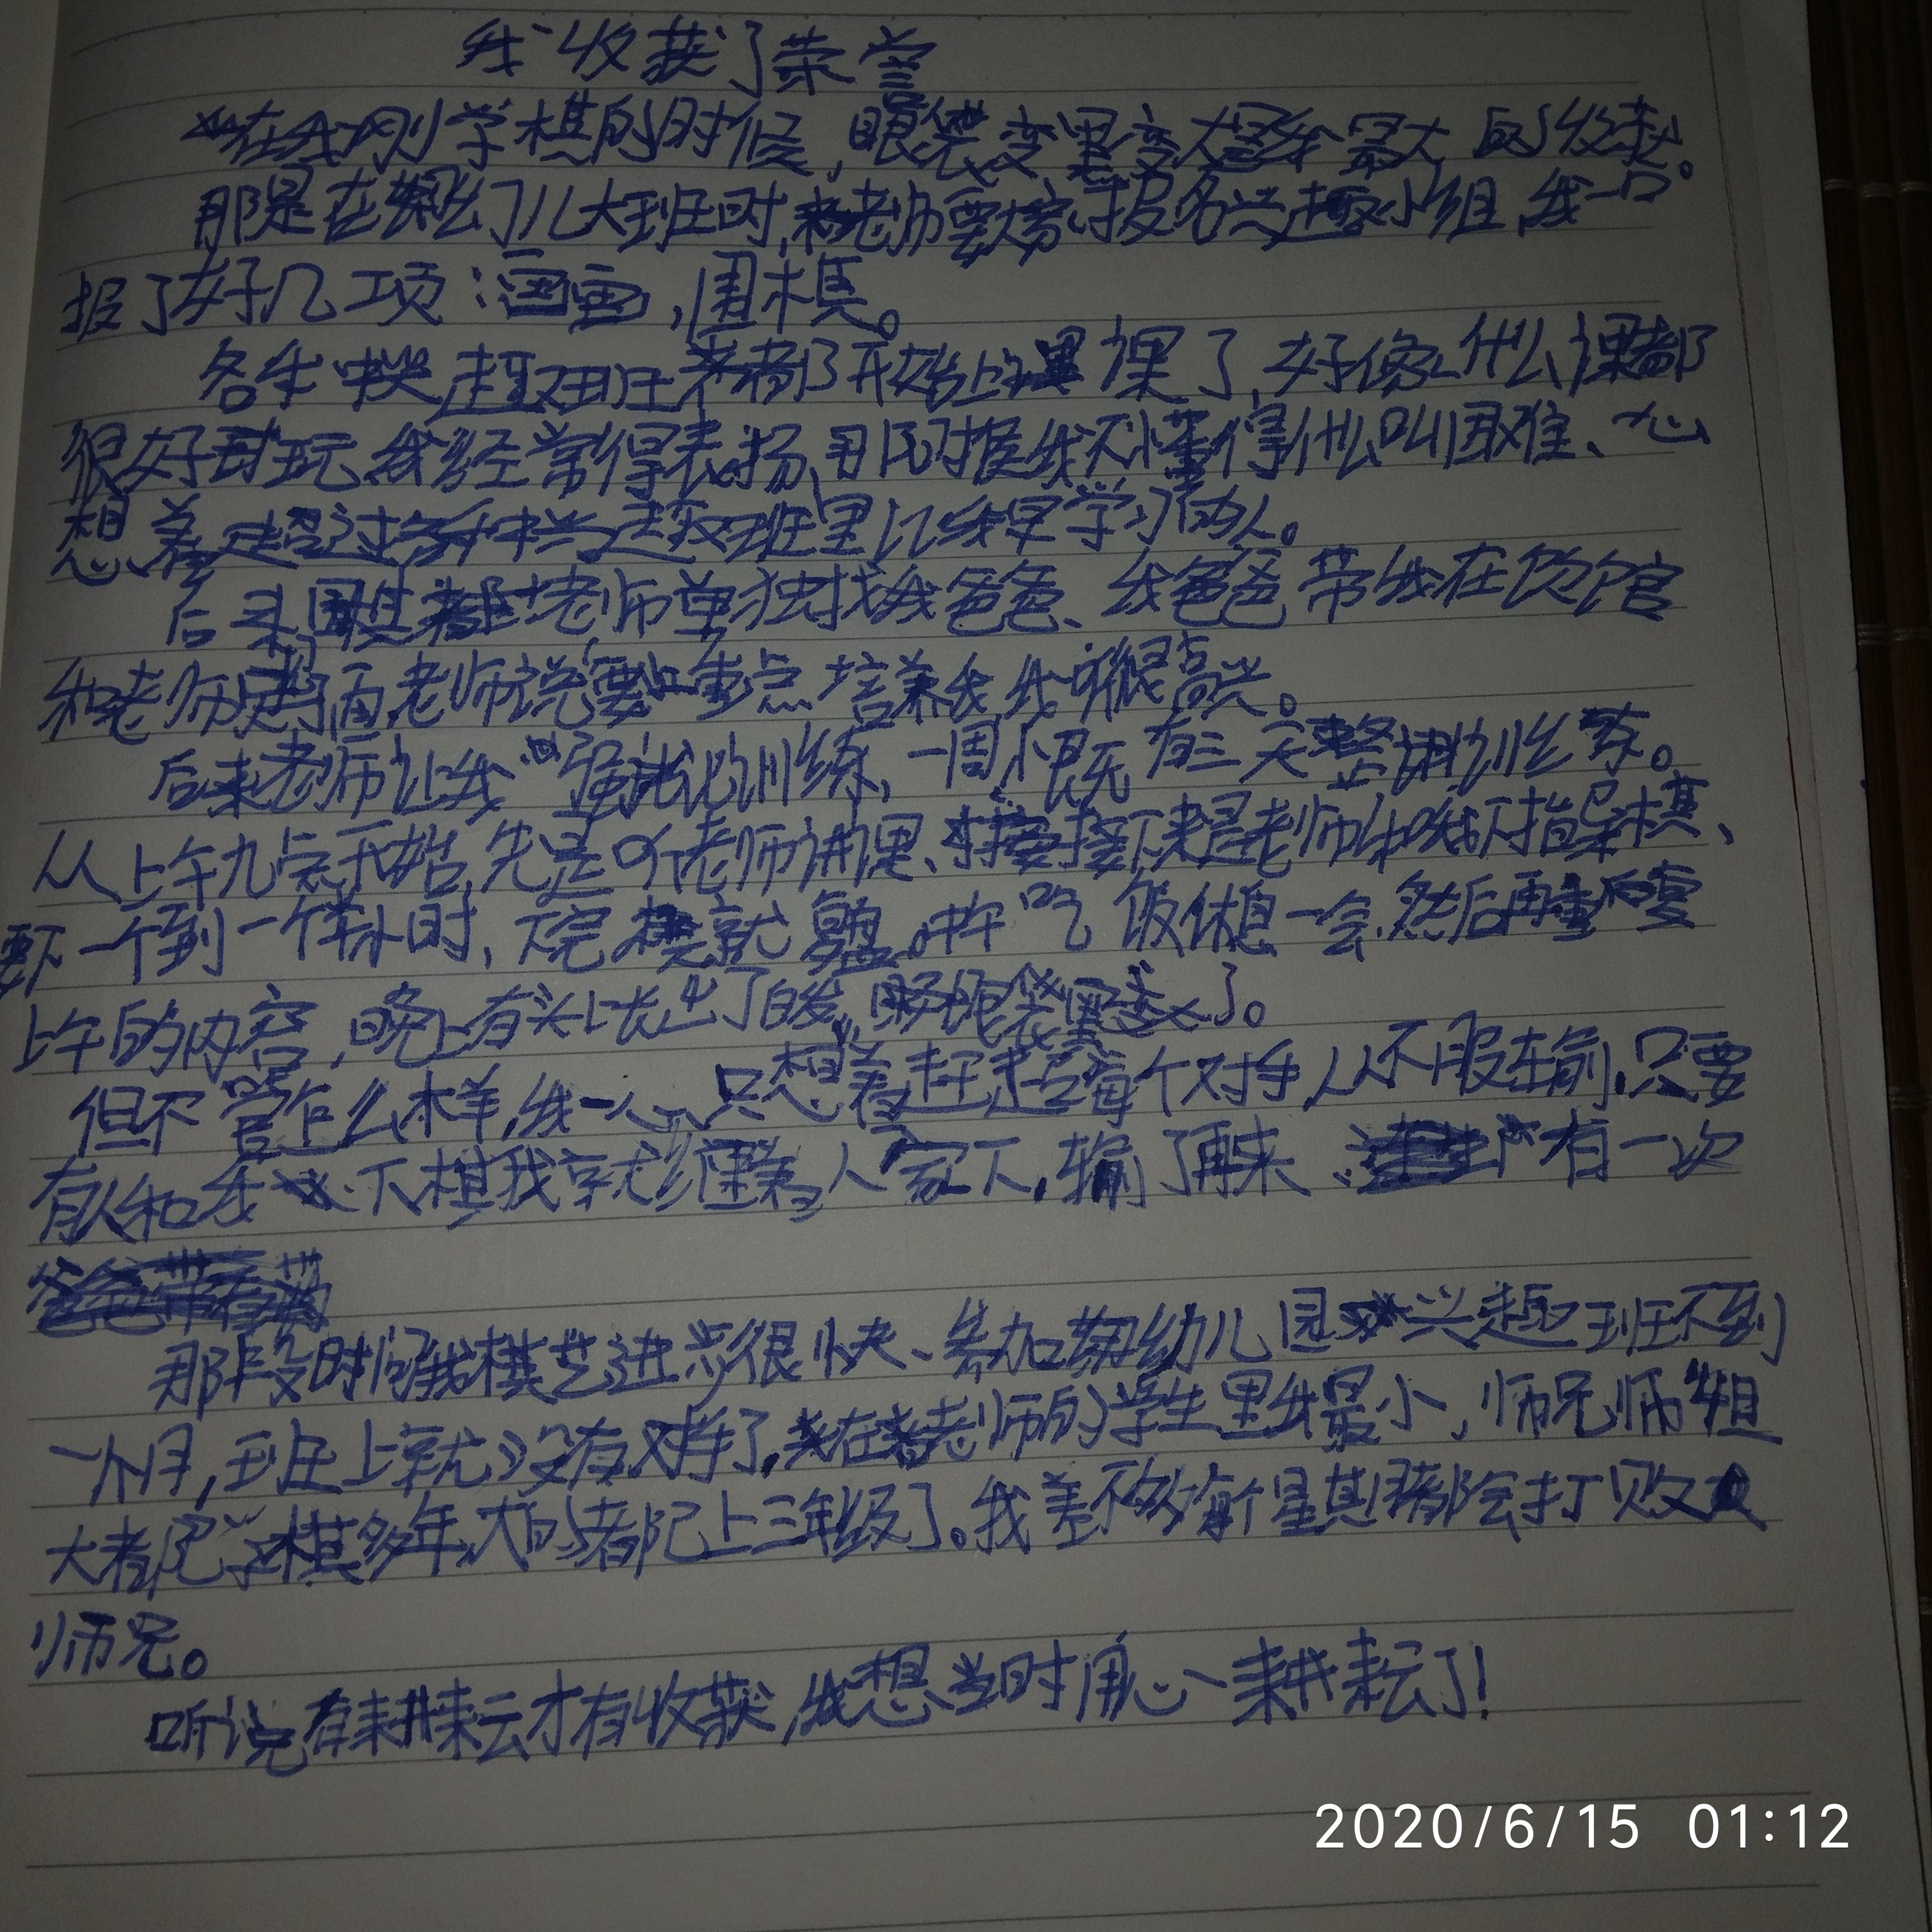 我收获了荣誉
在我刚学棋的时候，眼袋变黑变大是我最大的收获。
那是在幼儿大班时，老师要大家报名兴趣小组，我一口
报了好几项：画画，围棋。
各种兴趣班都开始上课了，好像什么课都
很好玩、我经常得表扬、那时候我不懂得什么叫困难、一心
想着超过各种兴趣班里比我早学习的人。
后来围棋老师单独找我爸爸、我爸爸带我在饮馆
和老师见了面，老师说要重点培养我我可很高兴。
后来老师让我"强化训练，一周有三天整训练。
从上午九点开始，先是听老师讲课、接下来是老师和我下指导棋、
要下一个到一个半小时，下完棋就复盘。中午吃饭休息一会、然后再重复
上午的内容，晚上有头上长出了白发，眼袋黑了。
但不管怎么样，我一心只想着赶超每个对手，从不服输，只要
有人和我下棋我就缠着人家下，输了再来、有一次
那段时间我棋艺进步很快、参加幼儿园兴趣班不到
一个月，班上就没有对手了，我在老师的学生里我最小，师兄师姐
大都已学棋多年，大的都已上三年级了。我差不多每个星期都会打败
师兄。
听说有耕耘才有收获，我想当时用心耕耘了！
2020/6/15 01:12